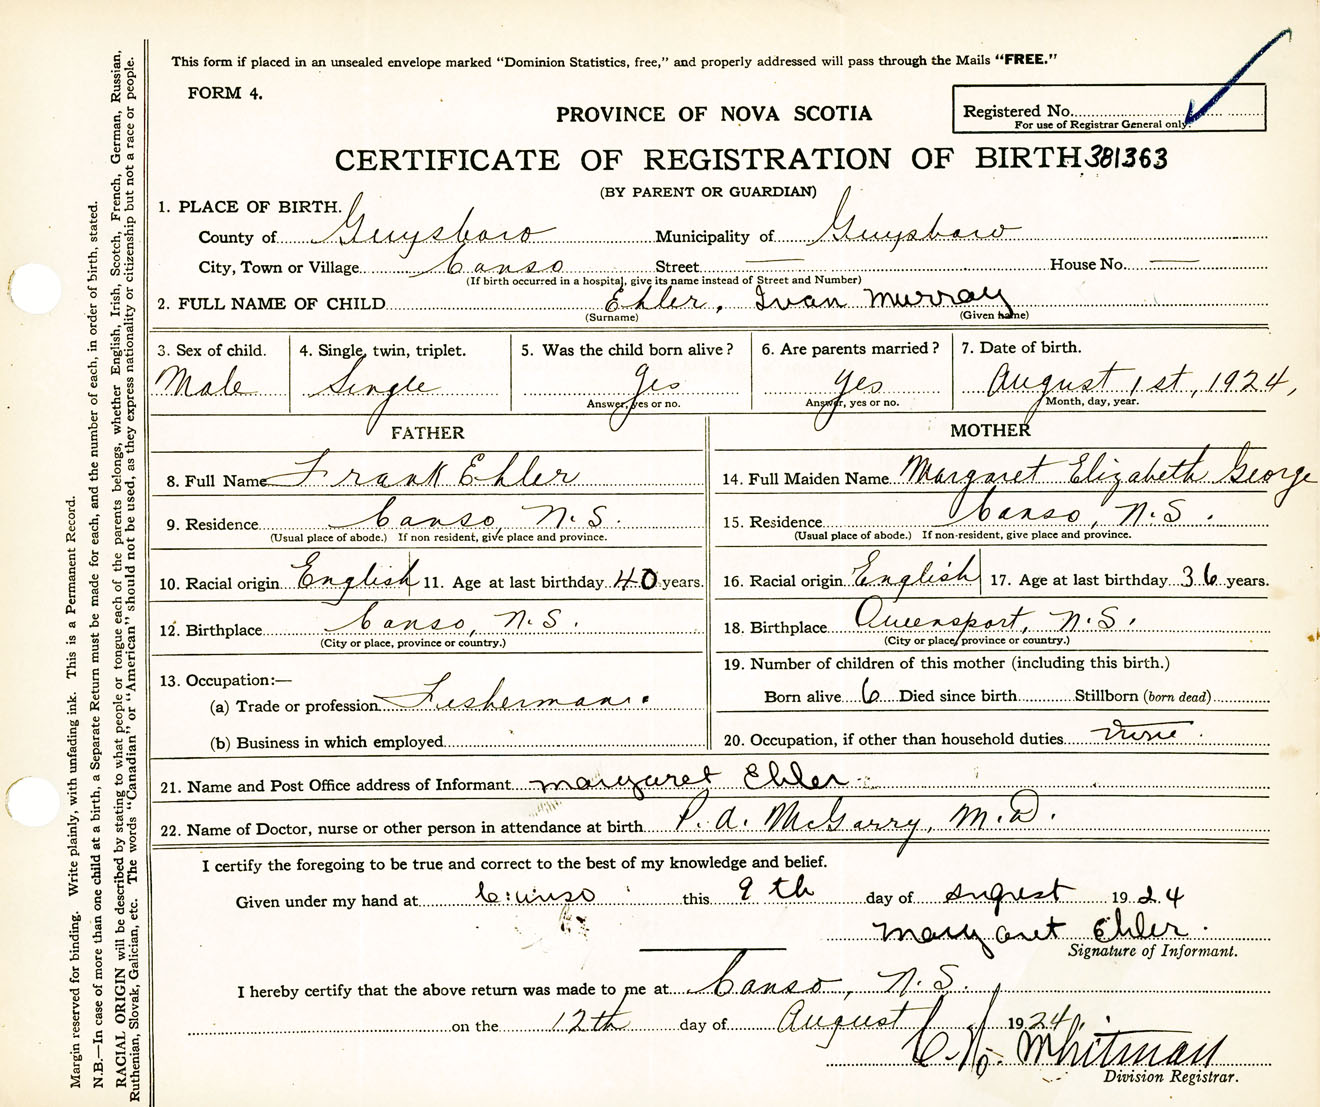 This form if placed in an unsealed envelope marked "Dominion Statistics, free," and properly addressed will pass through the Mails "FREE."
FORM 4.
PROVINCE OF NOVA SCOTIA
Registered No.
For use of Registrar General only.
CERTIFICATE OF REGISTRATION OF BIRTH 381363
(BY PARENT OR GUARDIAN)
1. PLACE OF BIRTH.
County of Guysboro Municipality of Guysboro
City, Town or Village Canso Street — House No. —
(If birth occurred in a hospital, give its name instead of Street and Number)
2. FULL NAME OF CHILD Ehler, Ivan Murray
(Surname) (Given name)
3. Sex of child. 4. Single, twin, triplet. 5. Was the child born alive? 6. Are parents married? 7. Date of birth.
Male Single Yes Yes August 1st, 1924,
Answer, yes or no. Answer, yes or no. Month, day, year.
FATHER MOTHER
8. Full Name Frank Ehler 14. Full Maiden Name Margaret Elizabeth George
9. Residence Canso, N.S. 15. Residence Canso, N.S.
(Usual place of abode.) If non resident, give place and province. (Usual place of abode.) If non-resident, give place and province.
10. Racial origin English 11. Age at last birthday 40 years. 16. Racial origin English 17. Age at last birthday 36 years.
12. Birthplace Canso, N.S. 18. Birthplace Queensport, N.S.
(City or place, province or country.) (City or place, province or country.)
19. Number of children of this mother (including this birth.)
13. Occupation:—
(a) Trade or profession Fisherman. Born alive 6 Died since birth Stillborn (born dead)
(b) Business in which employed 20. Occupation, if other than household duties
21. Name and Post Office address of Informant Margaret Ehler
22. Name of Doctor, nurse or other person in attendance at birth P. A. McGarry, M.D.
I certify the foregoing to be true and correct to the best of my knowledge and belief.
Given under my hand at Canso this 9th day of August 1924
Margaret Ehler.
Signature of Informant.
I hereby certify that the above return was made to me at Canso, N.S.
on the 12th day of August 1924.
Whitman
Division Registrar.
Margin reserved for binding. Write plainly, with unfading ink. This is a Permanent Record.
N.B.—In case of more than one child at a birth, a Separate Return must be made for each, and the number of each, in order of birth, stated.
RACIAL ORIGIN will be described by stating to what people or tongue each of the parents belongs, whether English, Irish, Scotch, French, German, Russian,
Ruthenian, Slovak, Galician, etc. The words "Canadian" or "American" should not be used, as they express nationality or citizenship but not a race or people.